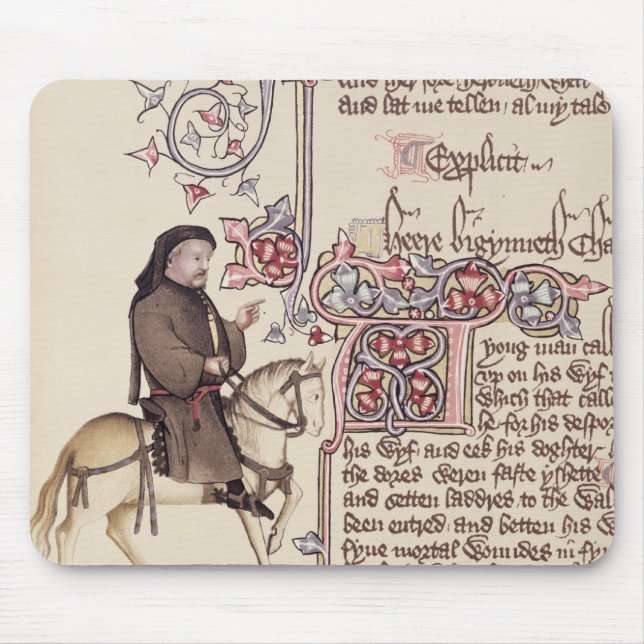 and lat me tellen al my tale
Explicit
heere bigynneth Cha
yong man call
up on his wyf
Which that calle
he for his despor
his wyf and eek his doghter
the dores weren faste yshette
and setten laddres to the wal
been entred and betten his w
fyue mortal woundes in fyu